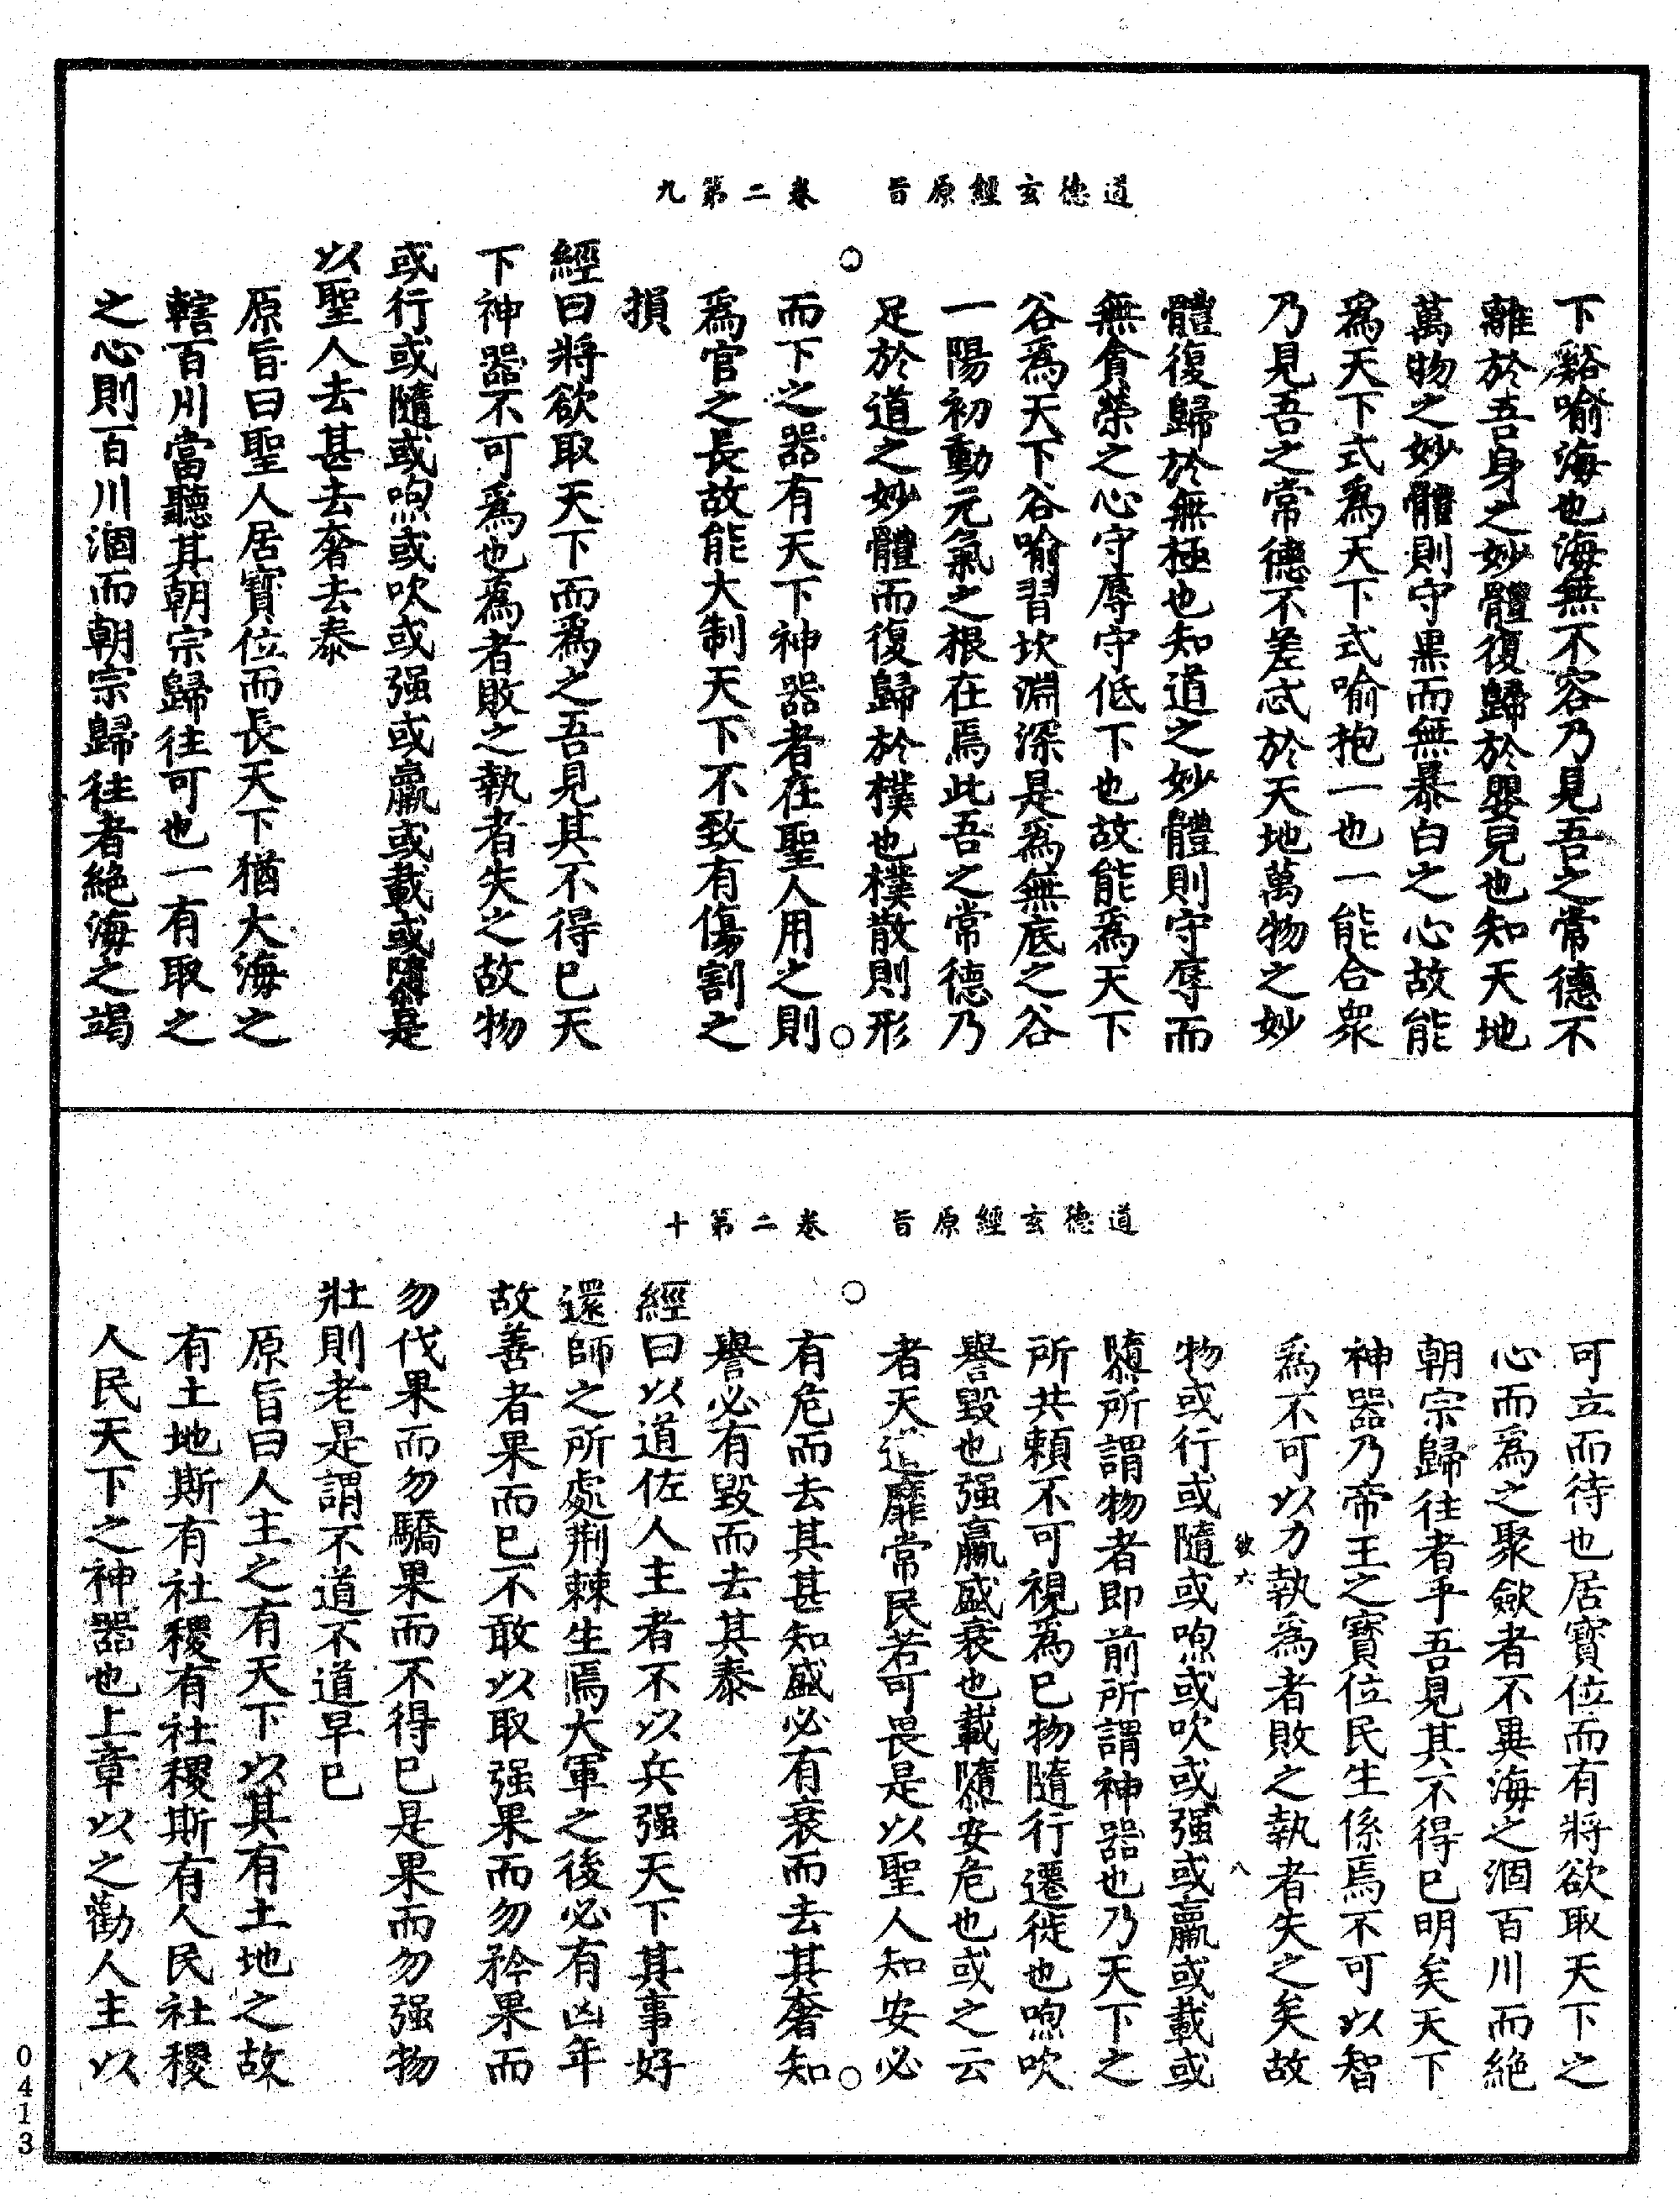 道德玄經原旨　卷二第九
下谿喻海也海無不容乃見吾之常德不
離於吾身之妙體復歸於嬰兒也知天地
萬物之妙體則守黒而無暴白之心故能
爲天下式爲天下式喻抱一也一能合衆
乃見吾之常德不差忒於天地萬物之妙
體復歸於無極也知道之妙體則守辱而
無貪榮之心守辱守低下也故能爲天下
谷爲天下谷喻習坎淵深是爲無底之谷
一陽初動元氣之根在焉此吾之常德乃
足於道之妙體而復歸於樸也樸散則形
而下之器有天下神器者在聖人用之則
爲官之長故能大制天下不致有傷割之
損
經曰將欲取天下而爲之吾見其不得已天
下神器不可爲也爲者敗之執者失之故物
或行或隨或呴或吹或强或羸或載或隳是
以聖人去甚去奢去泰
原旨曰聖人居寶位而長天下猶大海之
轄百川當聽其朝宗歸往可也一有取之
之心則百川涸而朝宗歸往者絶海之竭
道德玄經原旨　卷二第十
可立而待也居寶位而有將欲取天下之
心而爲之聚歛者不異海之涸百川而絶
朝宗歸往者乎吾見其不得已明矣天下
神器乃帝王之寶位民生係焉不可以智
爲不可以力執爲者敗之執者失之矣故
欲六　八
物或行或隨或呴或吹或强或羸或載或
隳所謂物者即前所謂神器也乃天下之
所共賴不可視爲已物隨行遷徙也呴吹
譽毀也强羸盛衰也載隳安危也或之云
者天難靡常民若可畏是以聖人知安必
有危而去其甚知盛必有衰而去其奢知
譽必有毀而去其泰
經曰以道佐人主者不以兵强天下其事好
還師之所處荆棘生焉大軍之後必有凶年
故善者果而已不敢以取强果而勿矜果而
勿伐果而勿驕果而不得已是果而勿强物
壯則老是謂不道不道早已
原旨曰人主之有天下以其有土地之故
有土地斯有社稷有社稷斯有人民社稷
人民天下之神器也上章以之勸人主以
0413